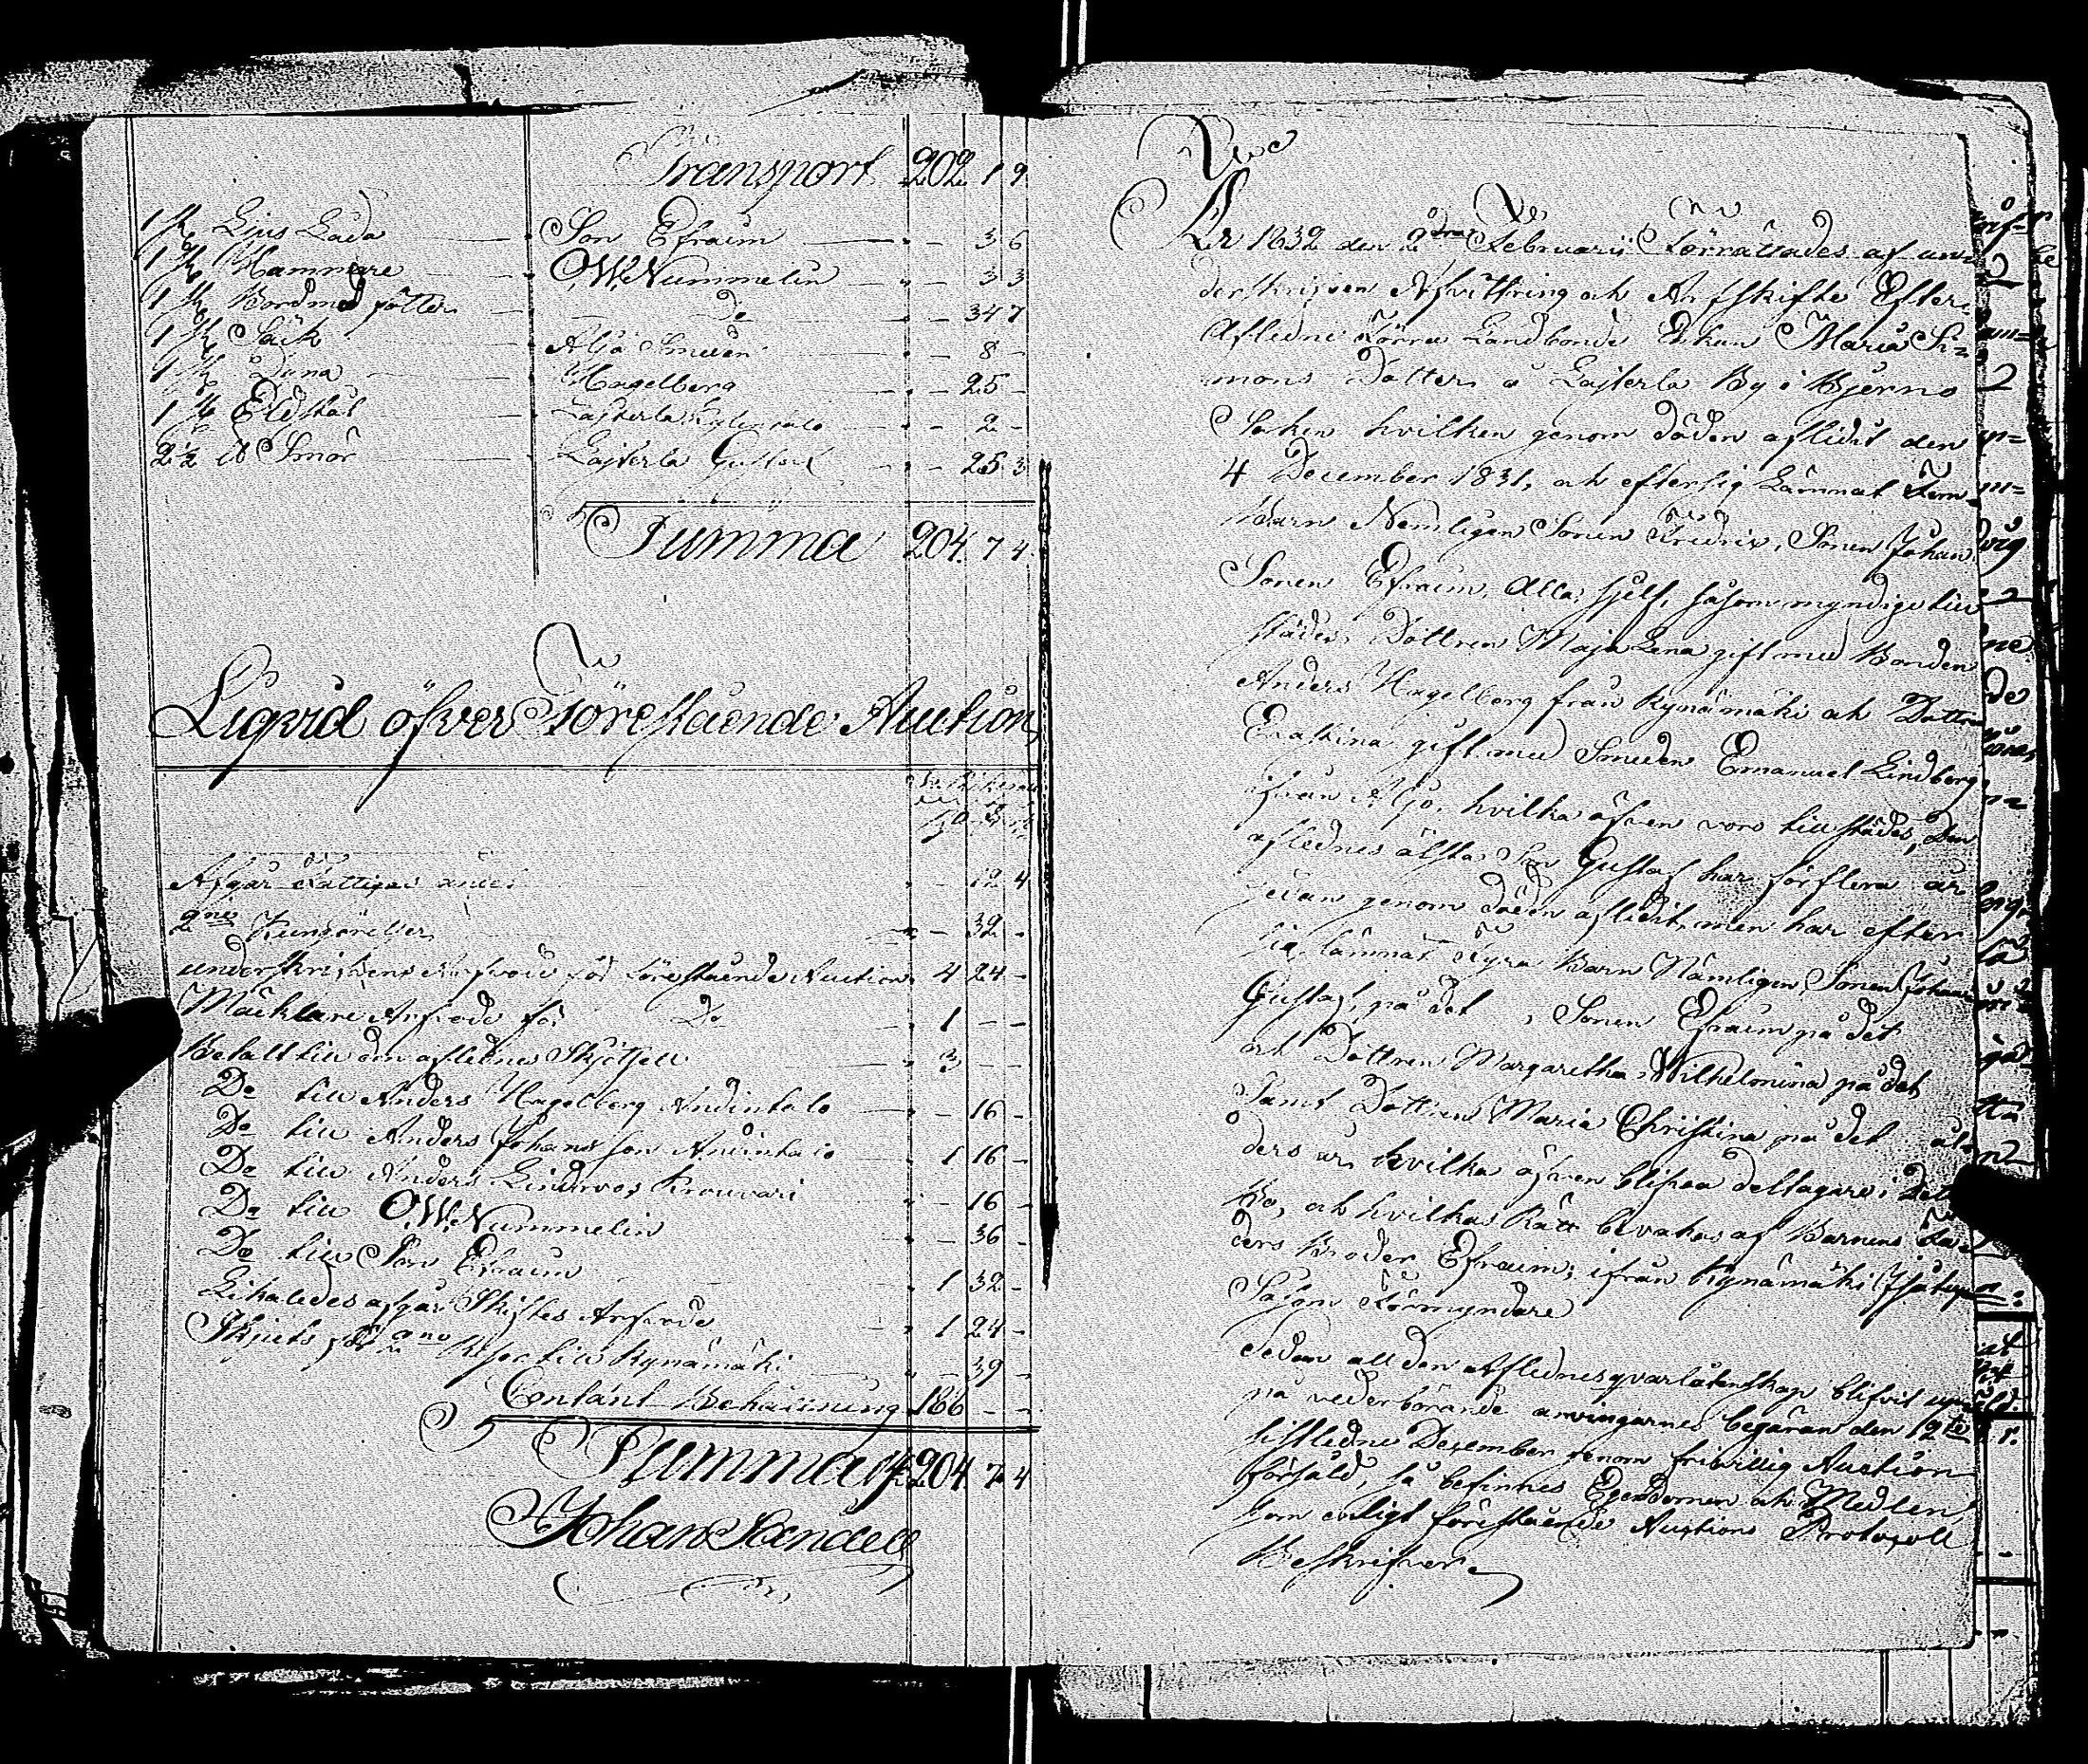 Transport 202 1 9
1 St Ljus Låda Son Efraim - 3 6
1 St Hammare O.W. Nummelin - 3 3
1 St Bord med fötter do - 34 7
1 St Säck Aljo Smeden - 8 -
1 St Duna Hagelberg - 25 -
1 St Eldstål Lasterla Kylintalo - 2 -
2½ ℔ Smör Lasterla Gustaf - 25 3
Summa 204. 7 4.
Liqvid öfver Förestående Auction
Afgår Fattigas andel - 12 4
2ne Kungörelser - 32 -
underskrifvens Arfvode för Förestående Auction 4 24 -
Mäcklare Arfvode för Do 1 - -
Betalt till den aflednes 3 - -
Do till Anders Hagelberg Andintalo - 16 -
Do till Anders Johansson Andintalo 1 16 -
Do till Anders Lindroos Krouvari - 16 -
Do till O.W. Nummelin - 36 -
Do till Son Efraim 1 32 -
Likaledes afgår Skiftes Arfvode 1 24 -
Skjuts för 2ne Resor till Kynämäki - 39 -
Contant Behållning 186 - -
Summa 204. 7 4
Johan
År 1832 den 2dra Februarii Förrättades af un-
derskrifven Afvittring och Arfskifte Efter
Afledne Förra Landbonde Enkan Maria Si-
mons Dotter å Lasterla By i Bjerno
Socken hvilken genom döden aflidit den
4 December 1831, och efter sig Lämnat Fem
Barn Nemligen Sonen Fredric, Sonen Johan
Sonen Efraim, Alla sjelf såsom myndige till
städes, Dottren Maja Lena gift med Bonden
Anders Hagelberg från Kynämäki och Dottren
gift med Smeden Emanuel Lindberg
ifrån Aljo, hvilka äfven voro till städes, Den
aflednes älsta Son Gustaf har för flera år
sedan genom döden aflidit, men har efter
sig lämnat Fyra Barn Nämligen Sonen Johan
Gustaf, på det , Sonen Efraim på det
och Dottren Margaretha Wilhelmina på det
Samt Dottren Maria Christina på det ål-
ders år, hvilka äfven blifva deltagare i Detta
Bo, och hvilkas Rätt bevakas af Barnens Fa-
ders Broder Efraim, ifrån Kynämäki
Såsom Förmyndare
Sedan all den Aflednes qvarlåtenskap blifvit
på vederbörande arvingarnes begäran den 12te
sistledne December genom frivillig Auction
försåld, så befinnes Egendomen och Medlen,
som enligt förestående Auctions Protocoll
Beskrifver